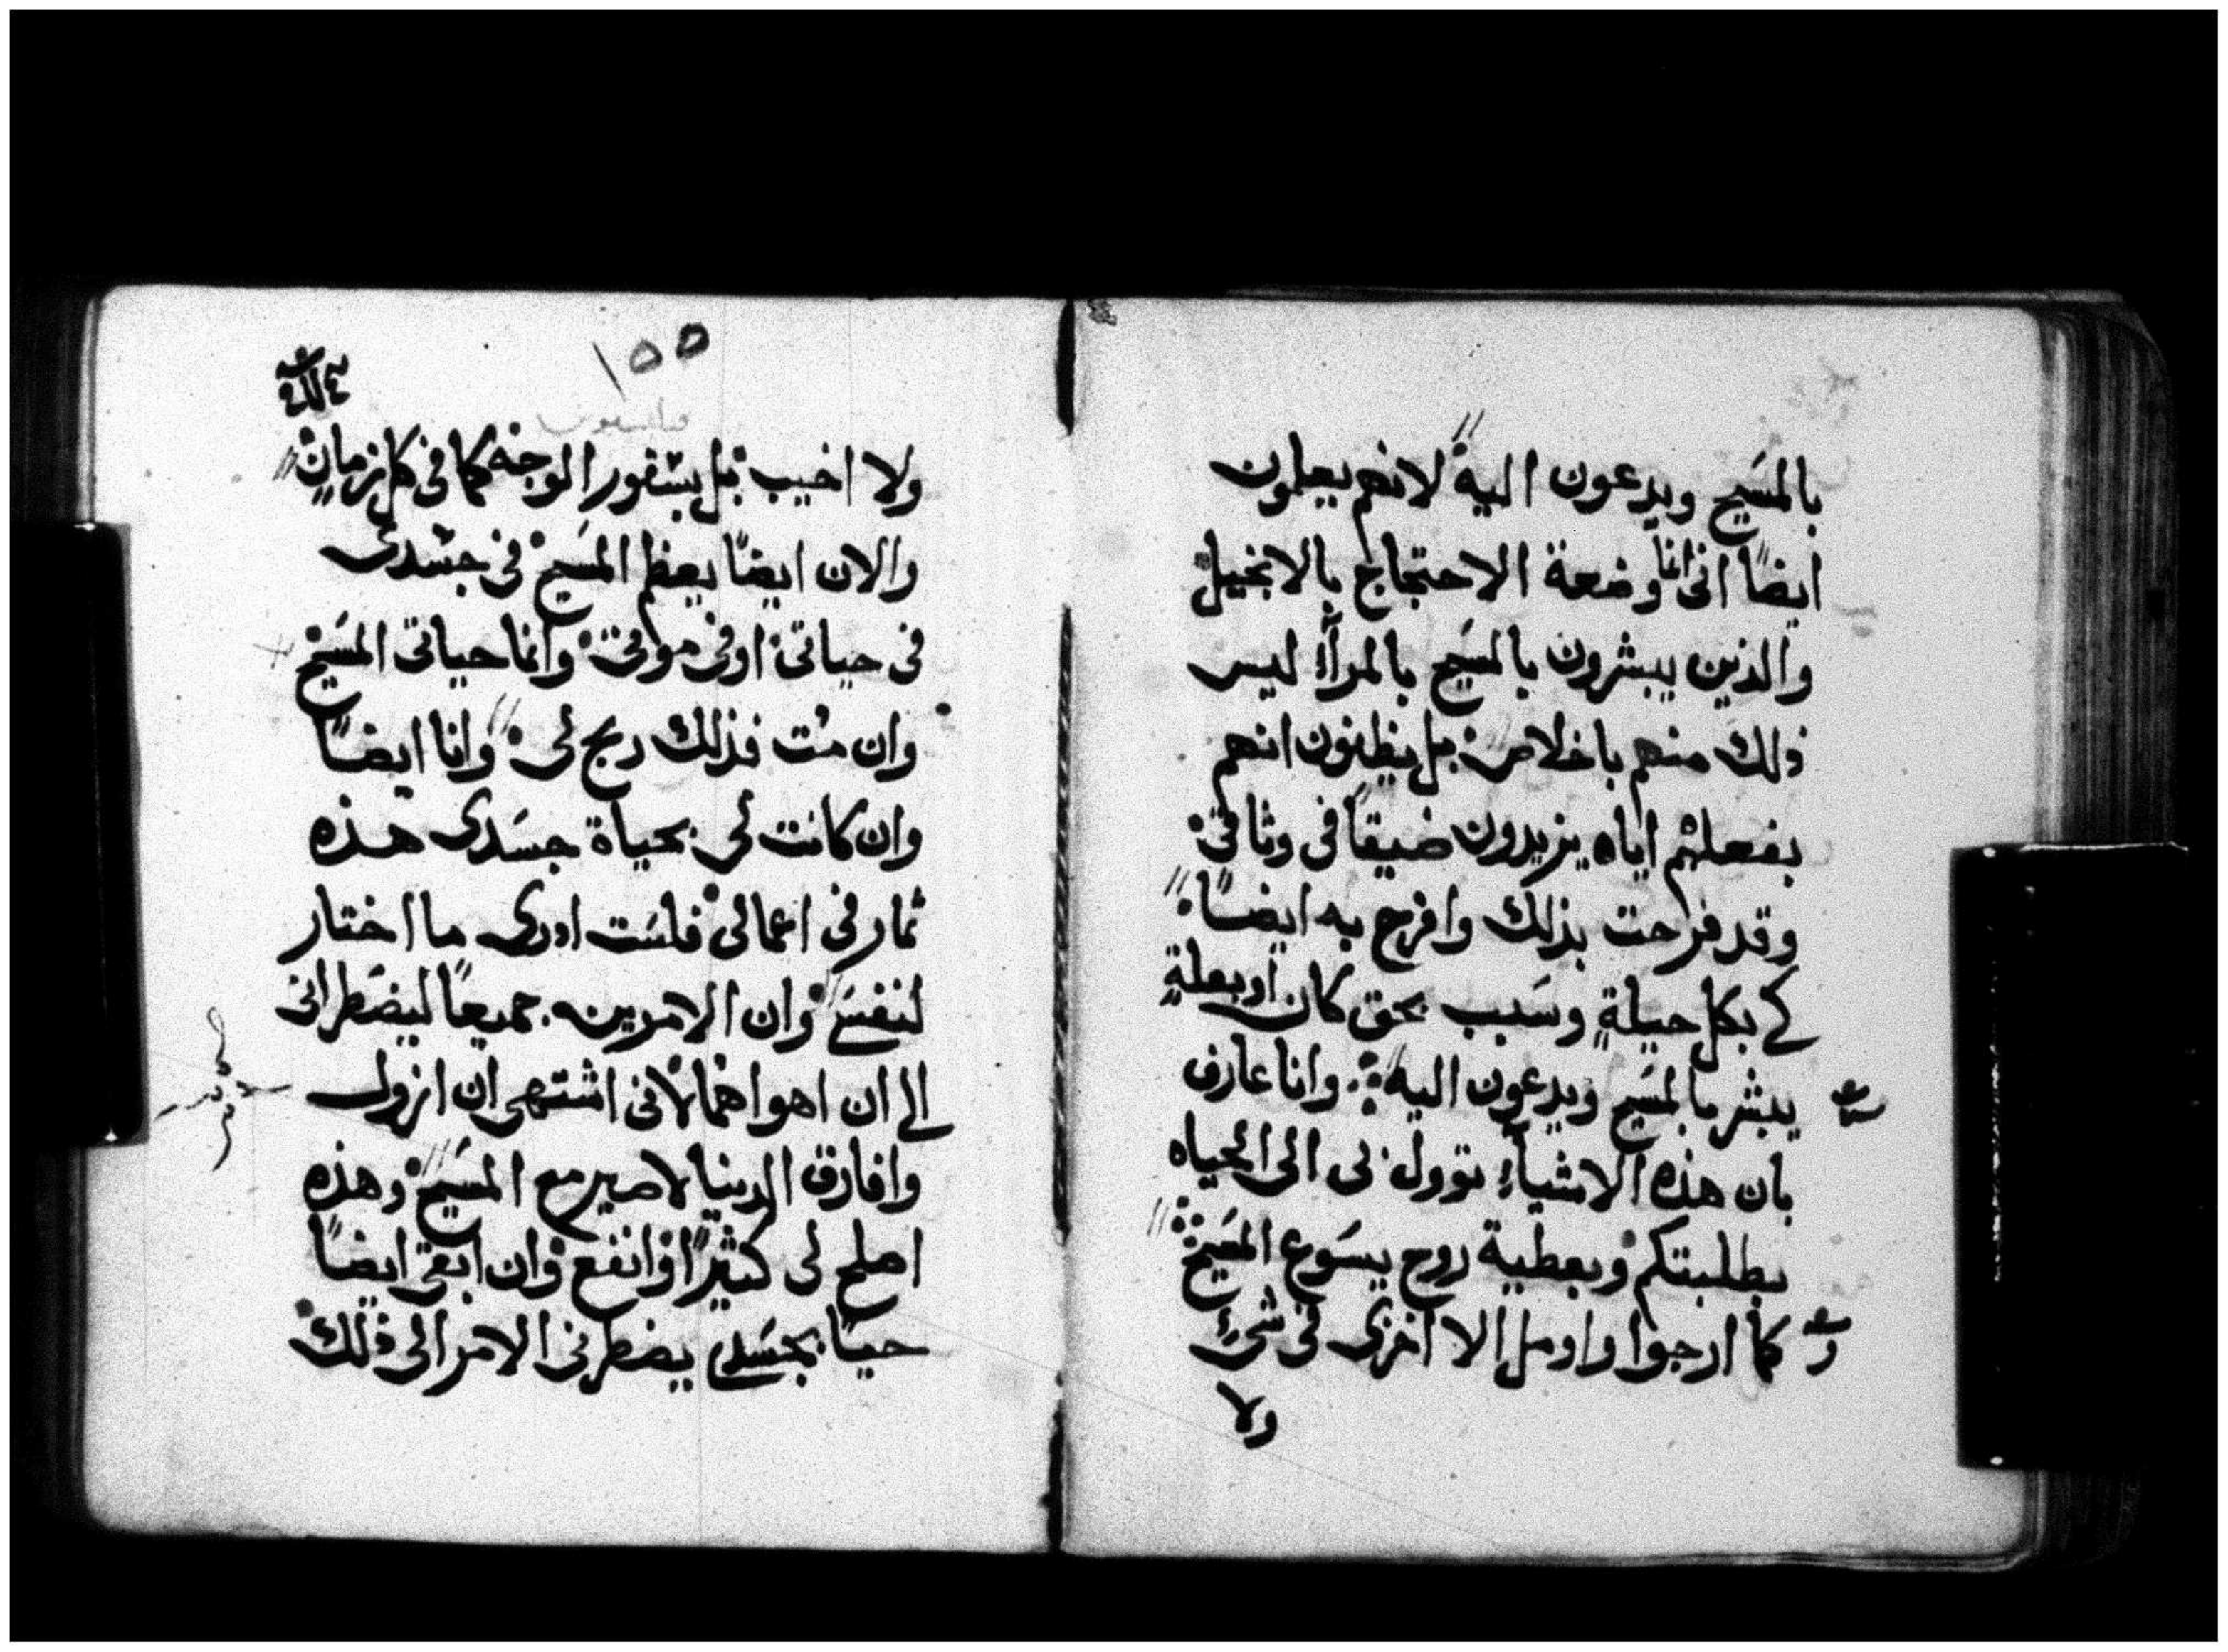 بالمسَيح ويدعون اليه لانهم يعلمون
ايضًا انى انما وضعة الاحتجاج بالانجيل
والذين يبشرون بالمسَيح بالمرآءِ ليس
ذلك منهم باخلاص بل يظنون انهم
بفعلهم اياه يزيدون ضيقًا فى وثاقى
وقد فرحت بذلك وافرح به ايضًا
لكى بكل حيلةٍ وسَبب بحق كان اوبعلةٍ
يبشر بالمسَيح ويدعون اليه وانا عارف
بان هذه الاشيآءِ توول لى الى الحياه
بطلبتكم وبعطية روح يسَوع المسَيح
كما ارجوا واومل الا اخزى فى شىءٍ
ولا
١٥٥
فيلبسيوس
ولا اخيب بل بسَفور الوجه كما فى كل زمانٍ
والان ايضًا يعظم المسَيح فى جسَدى
فى حياتى اوفى موتى وانما حياتى المسَيح
وان مُت فذلك ربح لى وانا ايضًا
وان كانت لى بحياة جسَدى هذه
ثمار فى اعمالى فلسَت ادرى ما اختار
لنفسَى وان الامرين جميعًا ليضَطرانى
الى ان اهواهما لانى اشتهى ان ازول
وافارق الدينا لاصير مع المسَيح وهذه
اصلح لى كثيرًا وانفع وان ابقى ايضًا
حيًا بجسَدى يضطرنى الامر الى ذلك